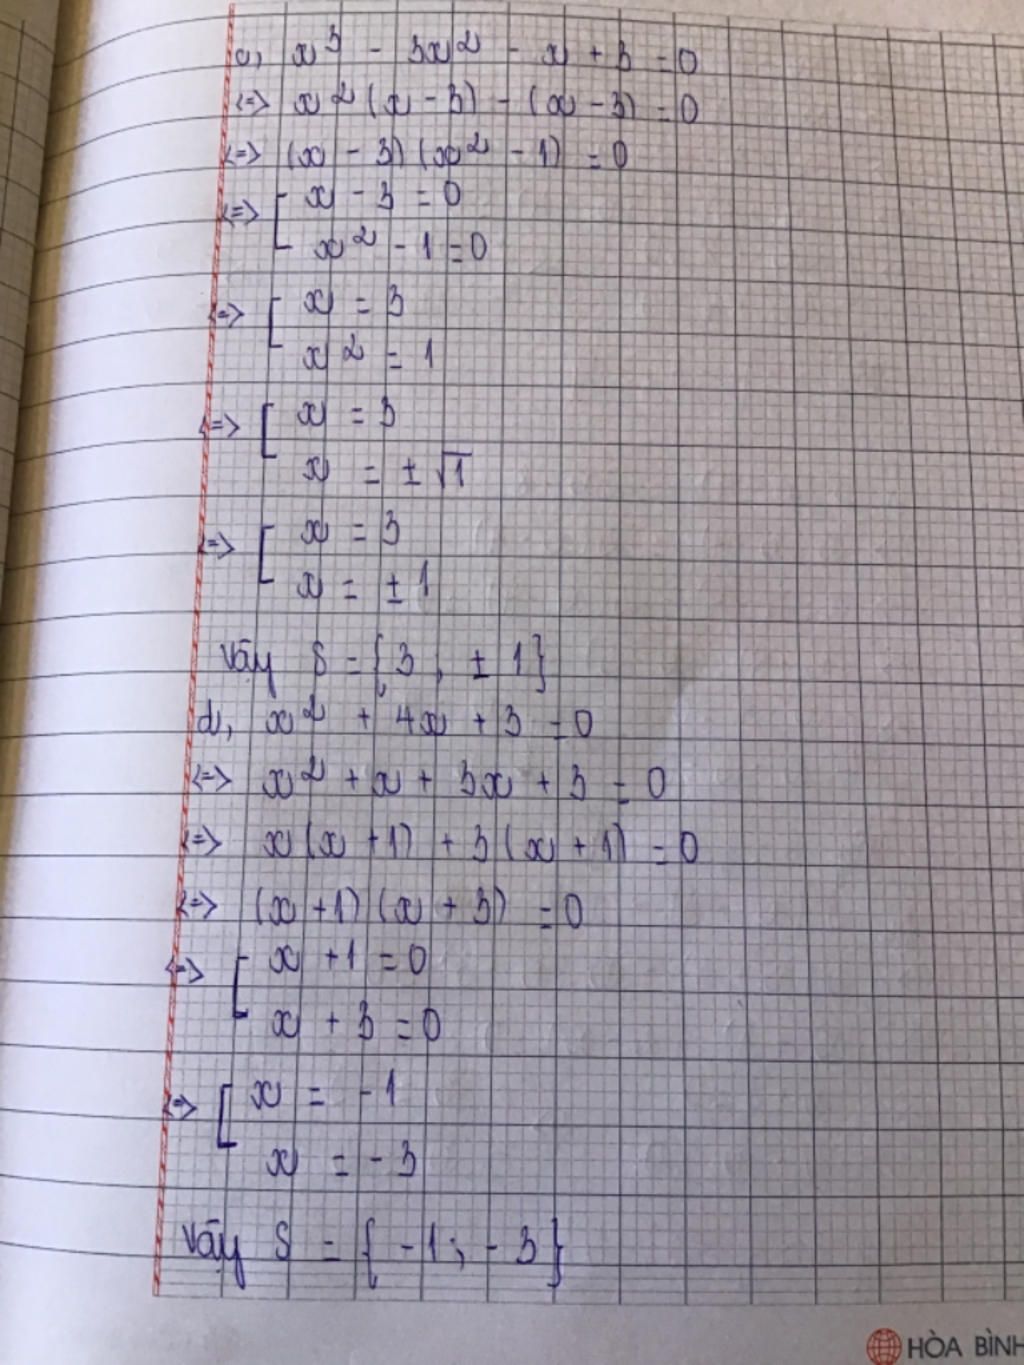 c, x³ - 3x² - x + 3 = 0
<=> x²(x - 3) - (x - 3) = 0
<=> (x - 3)(x² - 1) = 0
<=> [ x - 3 = 0
x² - 1 = 0
<=> [ x = 3
x² = 1
<=> [ x = 3
x = ± √1
<=> [ x = 3
x = ± 1
Vậy S = {3; ± 1}
d, x² + 4x + 3 = 0
<=> x² + x + 3x + 3 = 0
<=> x(x + 1) + 3(x + 1) = 0
<=> (x + 1)(x + 3) = 0
<=> [ x + 1 = 0
x + 3 = 0
<=> [ x = -1
x = -3
Vậy S = {-1; -3}
HÒA BÌNH